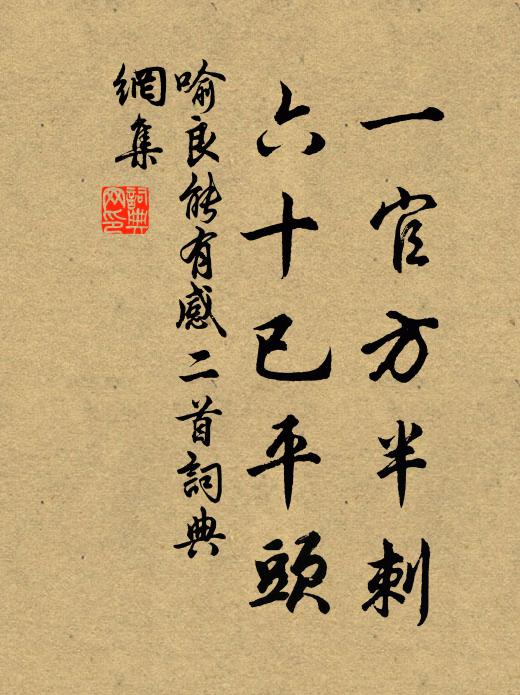 一官方半刺
六十已平頭
喻良能有感二首詞典
網集
詞典
网印